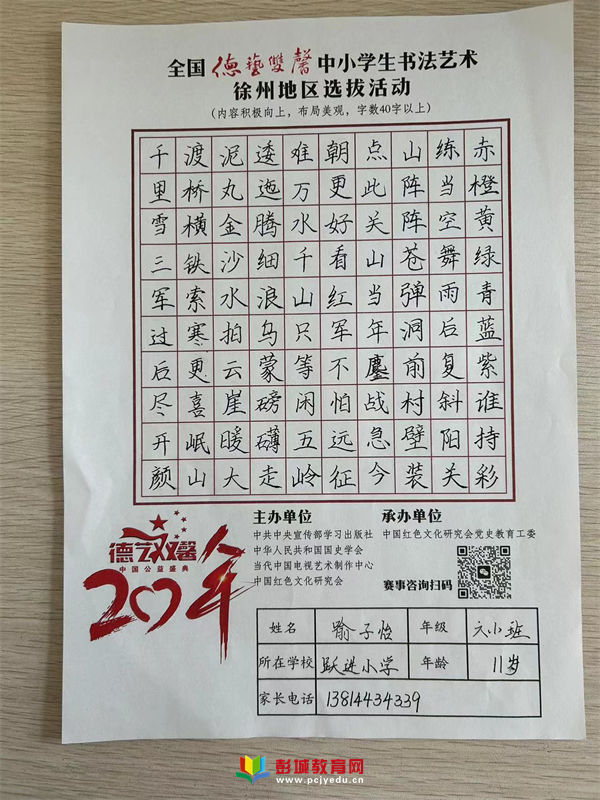 全国德藝雙馨中小学生书法艺术
徐州地区选拔活动
（内容积极向上，布局美观，字数40字以上）
赤橙黄绿青蓝紫谁持彩
练当空舞雨后复斜阳关
山阵阵苍弹洞前村壁装
点此关山当年鏖战急今
朝更好看红军不怕远征
难万水千山只等闲五岭
逶迤腾细浪乌蒙磅礴走
泥丸金沙水拍云崖暖大
渡桥横铁索寒更喜岷山
千里雪三军过后尽开颜
德艺双馨
中国公益盛典
20年
主办单位
中共中央宣传部学习出版社
中华人民共和国国史学会
当代中国电视艺术制作中心
中国红色文化研究会
承办单位
中国红色文化研究会党史教育工委
赛事咨询扫码
姓名 喻子怡 年级 六小班
所在学校 跃进小学 年龄 11岁
家长电话 13814434339
彭城教育网
www.pcjyedu.cn